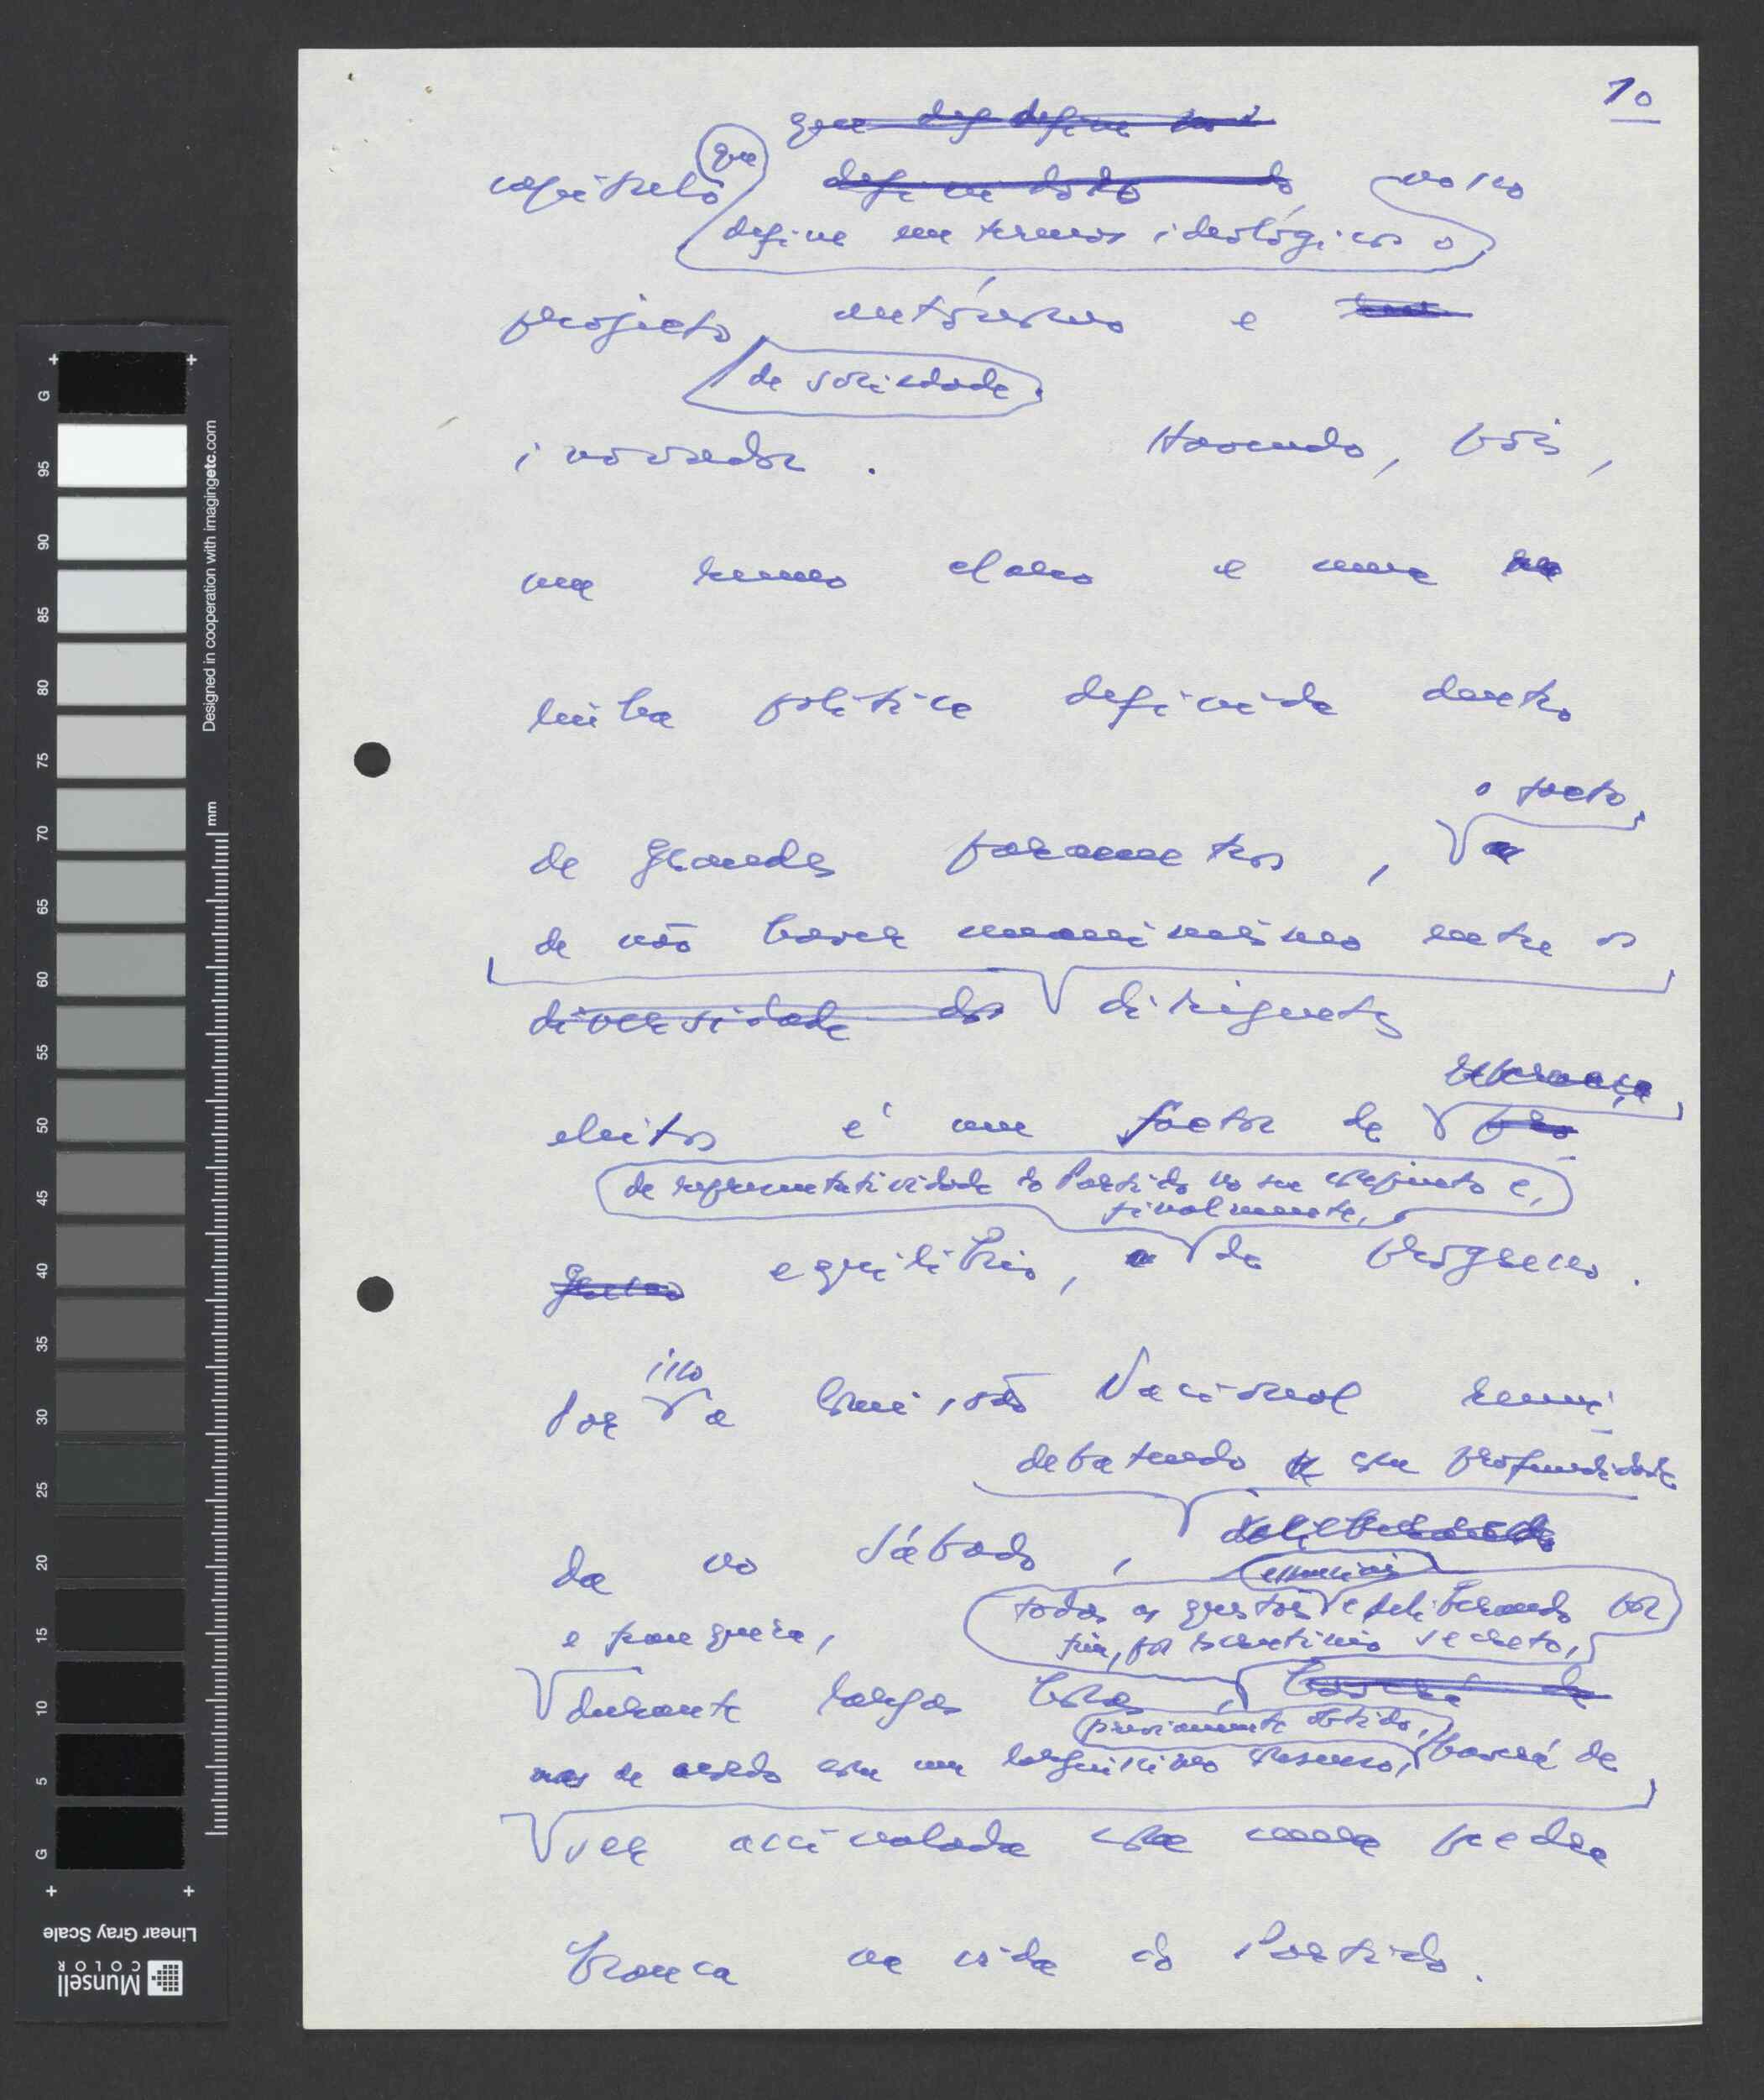 10
que
capítulo nosso
define em termos ideológicos o
projecto autónomo e
de sociedade
inovador. Havendo, pois,
um rumo claro e uma
linha política definida dentro
o facto
de grandes parametros,
de não haver unanimismo entre os
diversidade dos dirigentes
eleitos é um factor de
de representatividade do Partido no seu conjunto e,
finalmente,
equilíbrio, de progresso.
isso
Por a Comissão Nacional reuni
debatendo com profundidade
da no Sábado,
essenciais
todas as questões e deliberando por
e franqueza,
fim, por escrutínio secreto,
durante largas horas,
previamente obtido,
mas de acordo com um larguíssimo consenso, haverá de
ser assinalada como uma pedra
branca na vida do Partido.
G
95
90
85
80
75
70
65
60
55
50
45
40
35
30
25
20
15
10
5
G
mm
Designed in cooperation with imagingetc.com
Linear Gray Scale
Munsell
COLOR